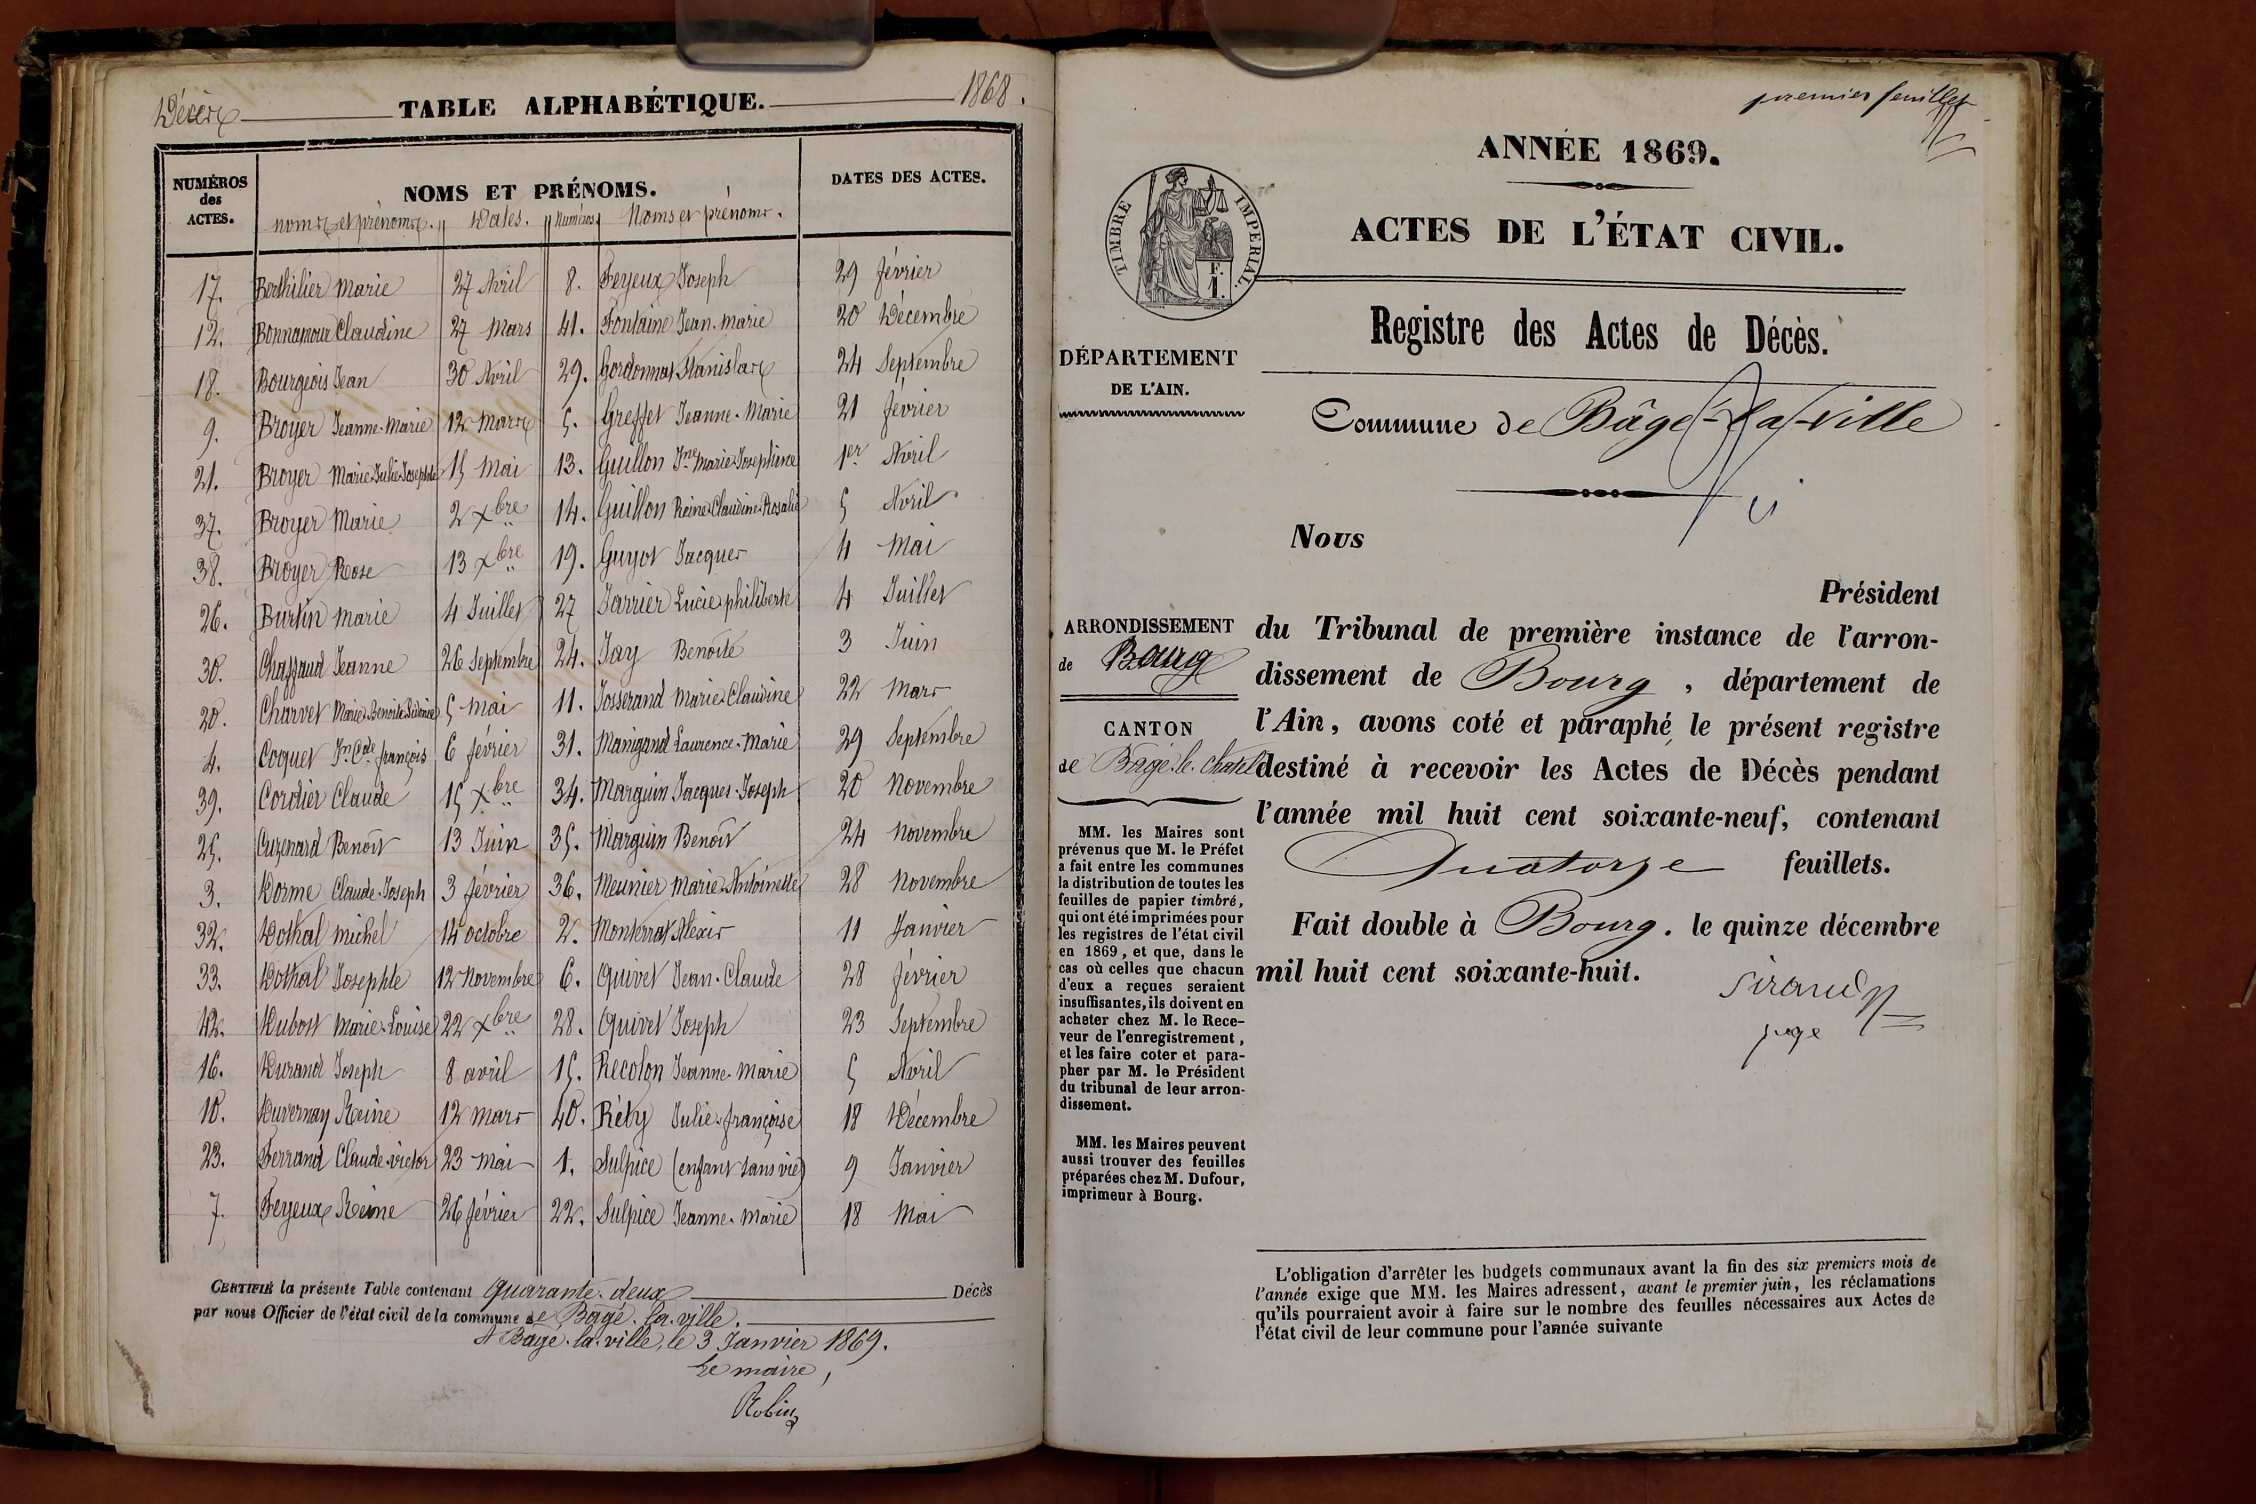 Décès TABLE ALPHABÉTIQUE. 1868.
NUMÉROS des ACTES. NOMS ET PRÉNOMS. DATES DES ACTES.
noms et prénoms. Dates. Numéros Noms et prénoms.
17. Berthilier Marie 27 Avril 8. Feyeux Joseph 29 février
12. Bonnamour Claudine 27 Mars 41. Fontaine Jean-Marie 20 Décembre
18. Bourgeois Jean 30 Avril 29. Gordonnat Stanislas 24 Septembre
9. Broyer Jeanne-Marie 12 Mars 5. Greffet Jeanne-Marie 21 février
21. Broyer Marie-Julie-Josephte 15 Mai 13. Guillon Jne Marie-Josephine 1er Avril
37. Broyer Marie 2 Xbre 14. Guillon Reine-Claudine-Rosalie 5 Avril
38. Broyer Rose 13 Xbre 19. Guyot Jacques 4 Mai
26. Burtin Marie 4 Juillet 27 Jarrier Lucie philiberte 4 Juillet
30. Chaffaud Jeanne 26 Septembre 24. Jay Benoite 3 Juin
20. Charvet Marie-Benoite-Sidonie 5 Mai 11. Josserand Marie-Claudine 22 Mars
4. Coquet Jn. Cde. françois 6 février 31. Manigand Laurence-Marie 29 Septembre
39. Cordier Claude 15 Xbre 34. Marguin Jacques-Joseph 20 Novembre
25. Cuzenard Benoît 13 Juin 35. Marguin Benoît 24 Novembre
3. Dorme Claude-Joseph 3 février 36. Meunier Marie-Antoinette 28 Novembre
32. Dothal Michel 14 octobre 2. Monterrat Alexis 11 Janvier
33. Dothal Josephte 12 Novembre 6. Quivet Jean-Claude 28 février
42. Dubost Marie-Louise 22 Xbre 28. Quivet Joseph 23 Septembre
16. Durand Joseph 8 avril 15. Recolon Jeanne-Marie 5 Avril
10. Duvernay Reine 12 Mars 40. Réty Julie-françoise 18 Décembre
23. Ferrand Claude-victor 23 Mai 1. Sulpice (enfant sans vie) 9 Janvier
7. Feyeux Reine 26 février 22. Sulpice Jeanne-Marie 18 Mai
CERTIFIÉ la présente Table contenant Quarante-deux Décès
par nous Officier de l'état civil de la commune de Bâgé-la-ville.
A Bâgé-la-ville, le 3 Janvier 1869.
Le maire,
Robin
premier feuillet
ANNÉE 1869.
TIMBRE IMPERIAL.
F.
1.
ACTES DE L'ÉTAT CIVIL.
Registre des Actes de Décès.
DÉPARTEMENT
DE L'AIN.
Commune de Bâgé-la-ville
Nous
Président
du Tribunal de première instance de l'arron-
dissement de Bourg, département de
l'Ain, avons coté et paraphé le présent registre
destiné à recevoir les Actes de Décès pendant
l'année mil huit cent soixante-neuf, contenant
Quatorze feuillets.
Fait double à Bourg. le quinze décembre
mil huit cent soixante-huit.
Sirand
juge
ARRONDISSEMENT
de Bourg
CANTON
de Bâgé-le-Chatel
MM. les Maires sont
prévenus que M. le Préfet
a fait entre les communes
la distribution de toutes les
feuilles de papier timbré,
qui ont été imprimées pour
les registres de l'état civil
en 1869, et que, dans le
cas où celles que chacun
d'eux a reçues seraient
insuffisantes, ils doivent en
acheter chez M. le Rece-
veur de l'enregistrement,
et les faire coter et para-
pher par M. le Président
du tribunal de leur arron-
dissement.
MM. les Maires peuvent
aussi trouver des feuilles
préparées chez M. Dufour,
imprimeur à Bourg.
L'obligation d'arrêter les budgets communaux avant la fin des six premiers mois de
l'année exige que MM. les Maires adressent, avant le premier juin, les réclamations
qu'ils pourraient avoir à faire sur le nombre des feuilles nécessaires aux Actes de
l'état civil de leur commune pour l'année suivante